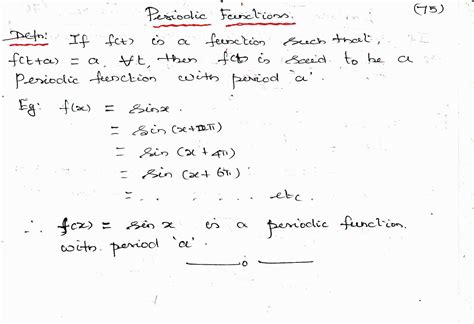 Periodic Functions. (75)
Defn: If f(t) is a function such that,
f(t+a) = a, ∀t, then f(t) is said to be a
Periodic function with period 'a'.
Eg: f(x) = sinx.
= sin (x+2π)
= sin (x+4π)
= sin (x+6π)
= . . . . . . . etc.
∴ f(x) = sin x is a periodic function
with period 'a'.